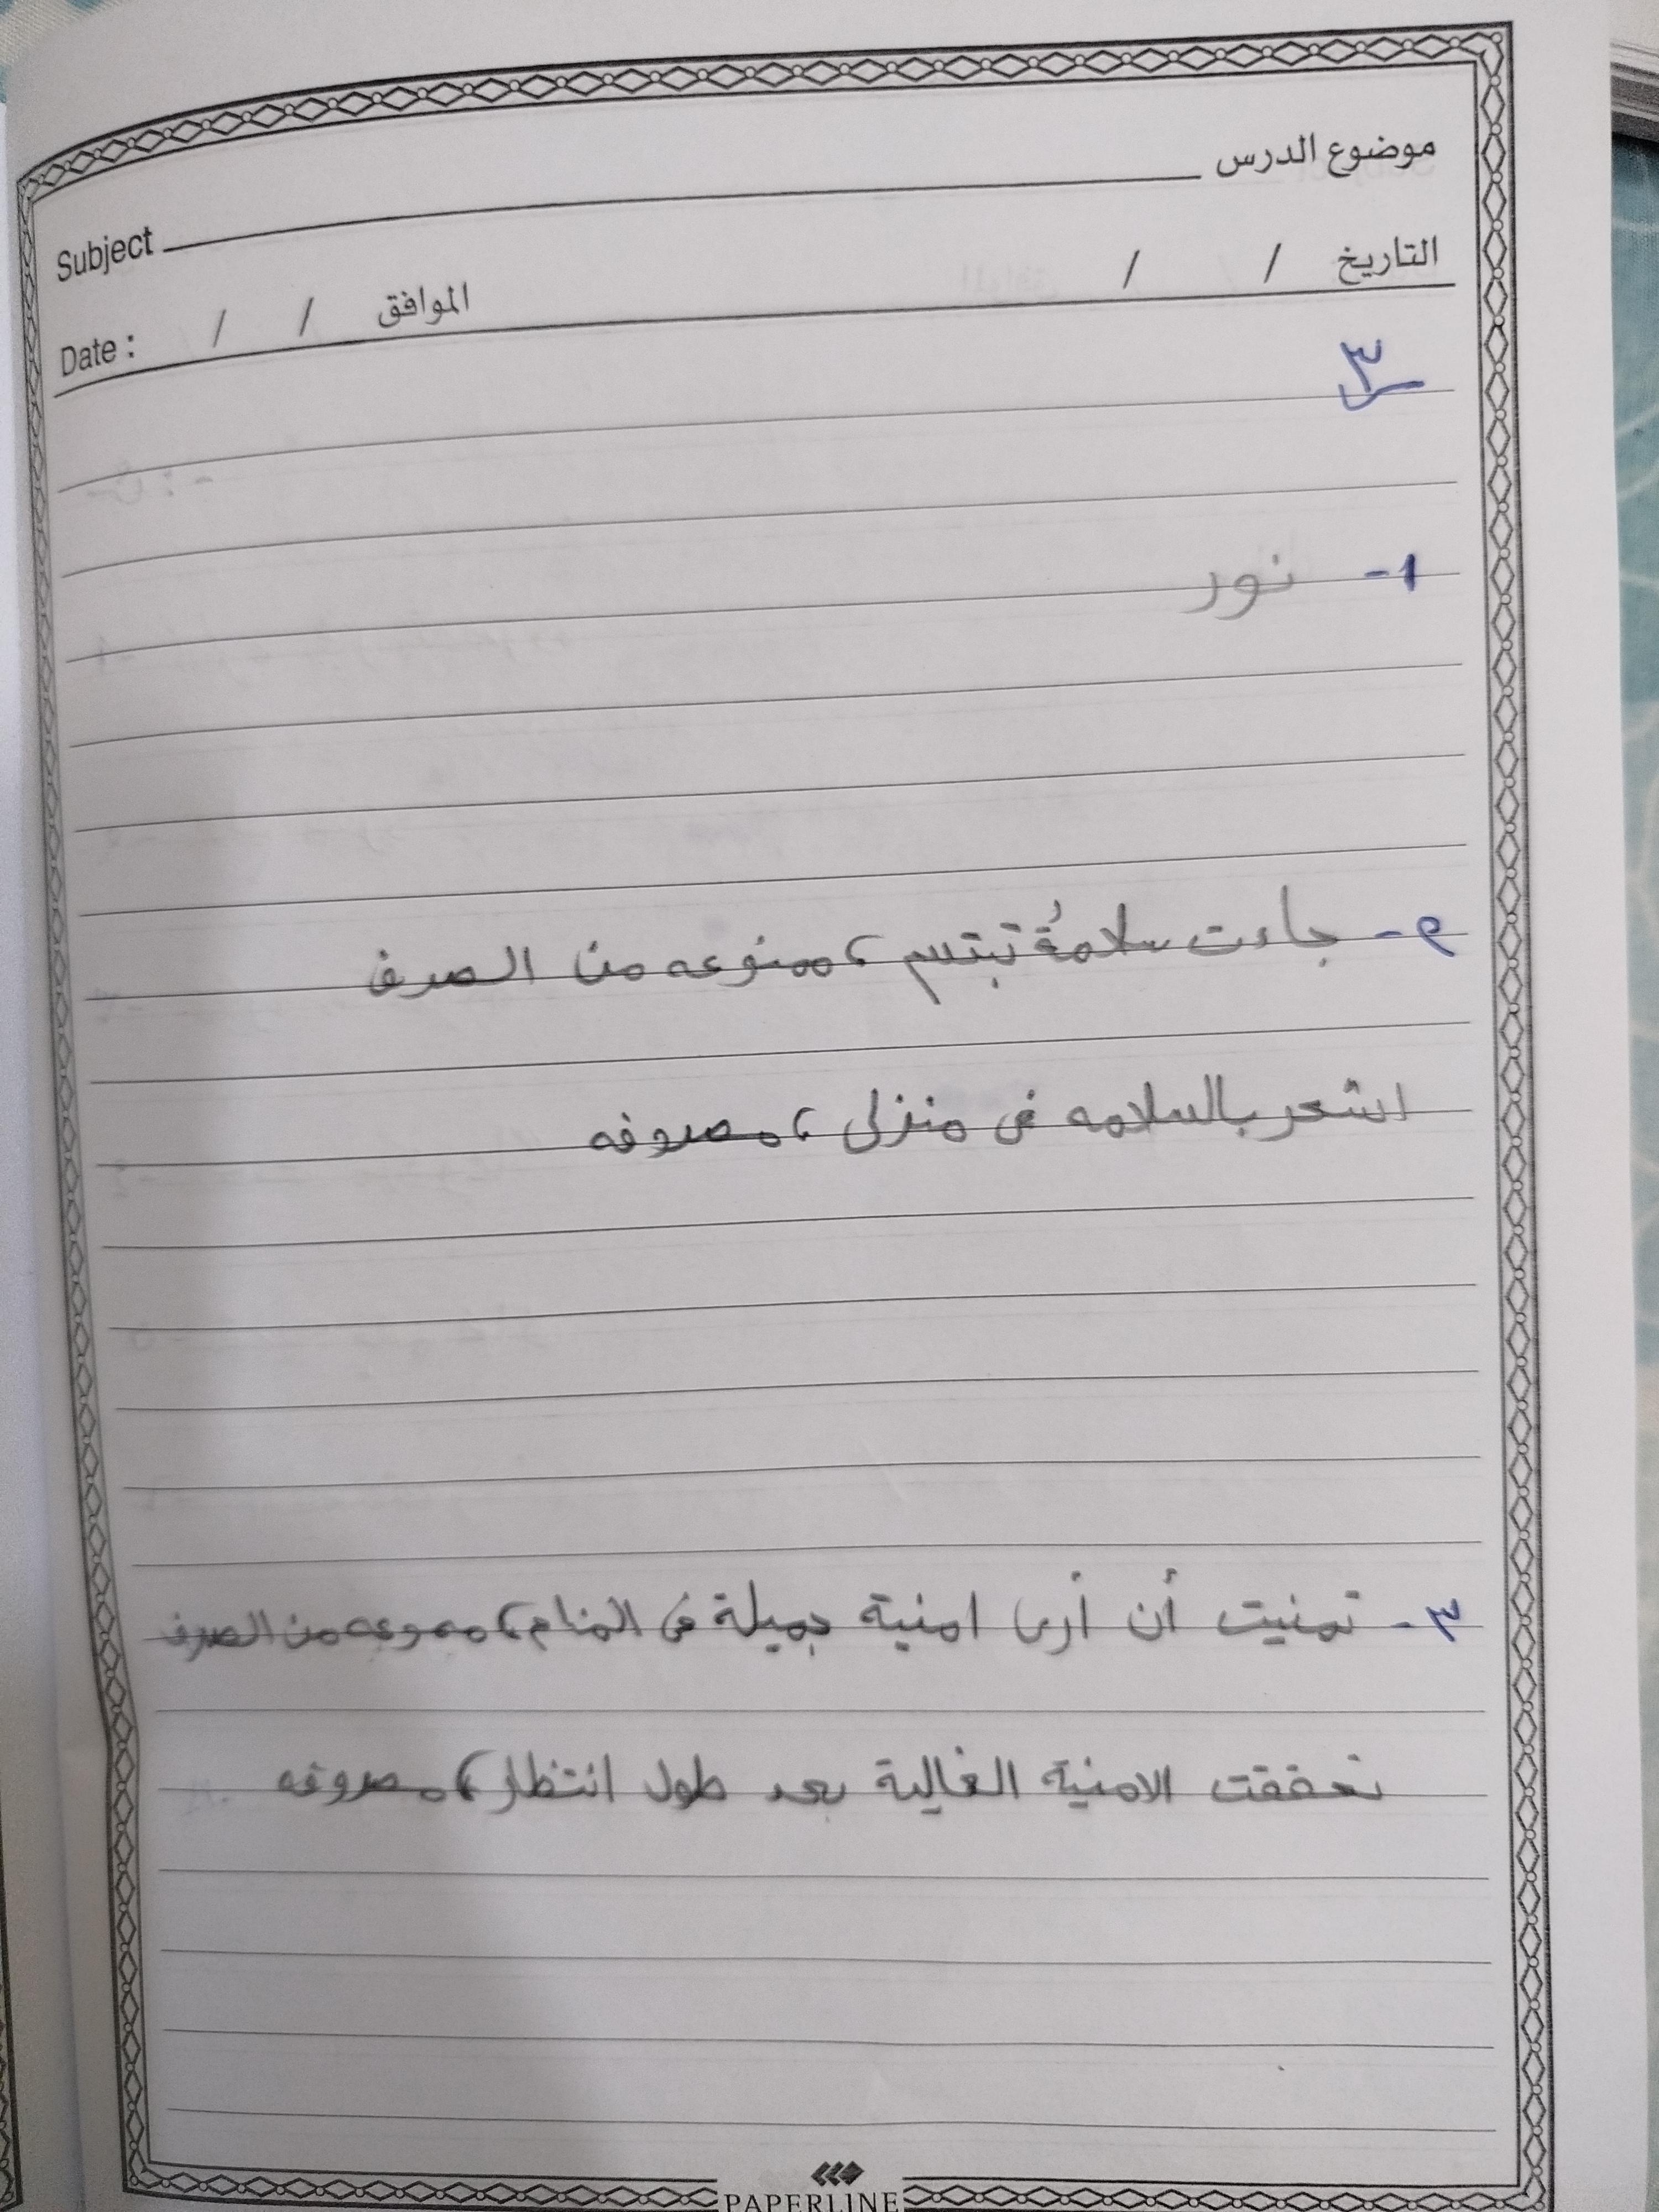 موضوع الدرس
Subject
التاريخ / /
الموافق / /
Date :
س٣
١- نور
٢- جاءت سلامةُ تبتسم ، ممنوعه من الصرف
اشعر بالسلامه في منزلي ، مصروفه
٣- تمنيت أن أرى امنية جميلة في المنام ، ممنوعه من الصرف
تحققت الامنية الغالية بعد طول انتظار ، مصروفه
PAPERLINE